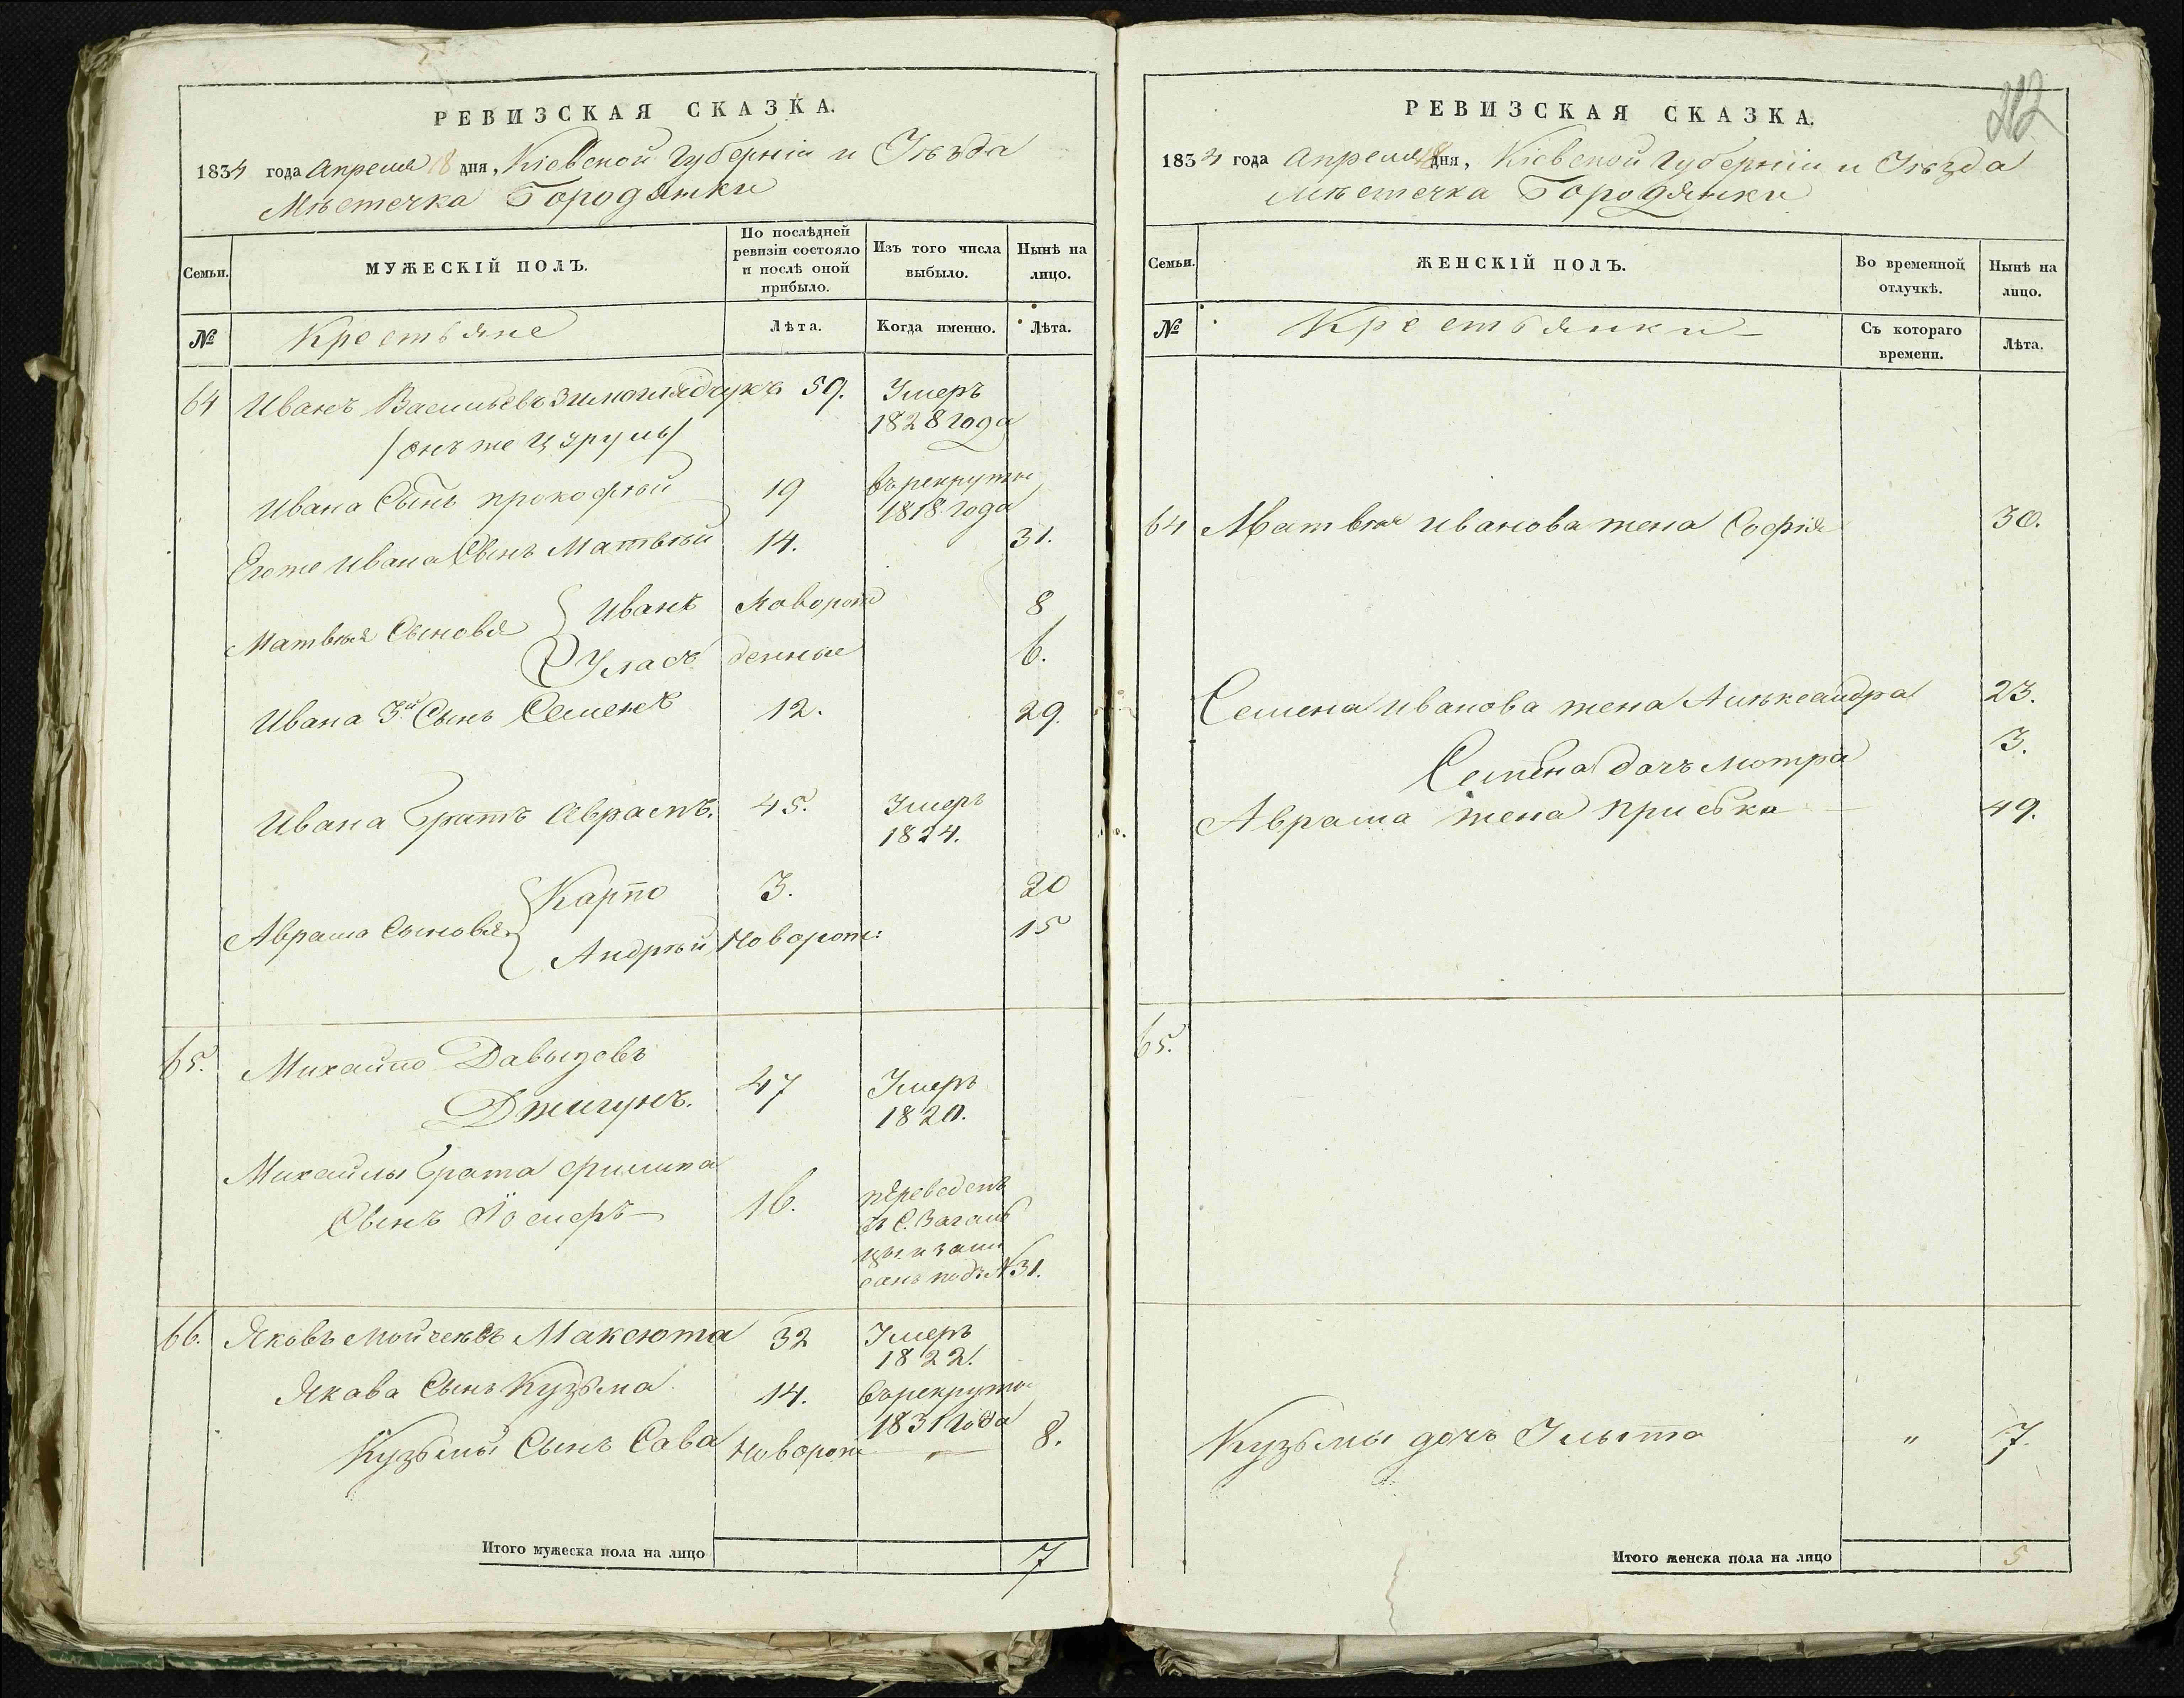 РЕВИЗСКАЯ СКАЗКА.
1834 года Апреля 18 дня, Кіевской Губерніи и Уѣзда
Мѣстечка Бородянки
Семьи.
МУЖЕСКІЙ ПОЛЪ.
По послѣдней ревизіи состояло и послѣ оной прибыло.
Изъ того числа выбыло.
Нынѣ на лицо.
№
Крестьяне
Лѣта.
Когда именно.
Лѣта.
64 Иванъ Васильевъ 59. Умеръ
1828 года
/онъ же
Ивана Сынъ Прокофій 19 въ рекруты
1818 года
Егоже Ивана Сынъ Матвѣй 14. 31.
Матвѣя Сыновья { Иванъ Новорож 8
Уласъ денные 6.
Ивана 3й Сынъ Семенъ 12. 29.
Ивана Братъ Аврамъ. 45. Умеръ
1824.
Аврама Сыновья { Карпо 3. 20
Андрѣй Новорож: 15
65. Михайло Давыдовъ
Джигунъ. 47 Умеръ
1820.
Михайлы Брата Филипа
Сынъ Іосифъ 16. переведенъ
въ С.
цы и запи
санъ подъ № 31.
66. Яковъ Максюта 32 Умеръ
1822.
Якова Сынъ Кузьма 14. Въ рекруты
1831 года
Кузьмы Сынъ Сава Новорож — 8.
Итого мужеска пола на лицо 7
212
РЕВИЗСКАЯ СКАЗКА.
1834 года Апреля 18 дня, Кіевской Губерніи и Уѣзда
Мѣстечка Бородянки
Семьи.
ЖЕНСКІЙ ПОЛЪ.
Во временной отлучкѣ.
Нынѣ на лицо.
№
Крестьянки
Съ котораго времени.
Лѣта.
64 Матвѣя Иванова жена Софія 30.
Семена Иванова жена Алѣксандра 23.
Семена дочъ Мотра 3.
Аврама жена Приська 49.
65.
Кузьмы дочъ " 7.
Итого женска пола на лицо 5